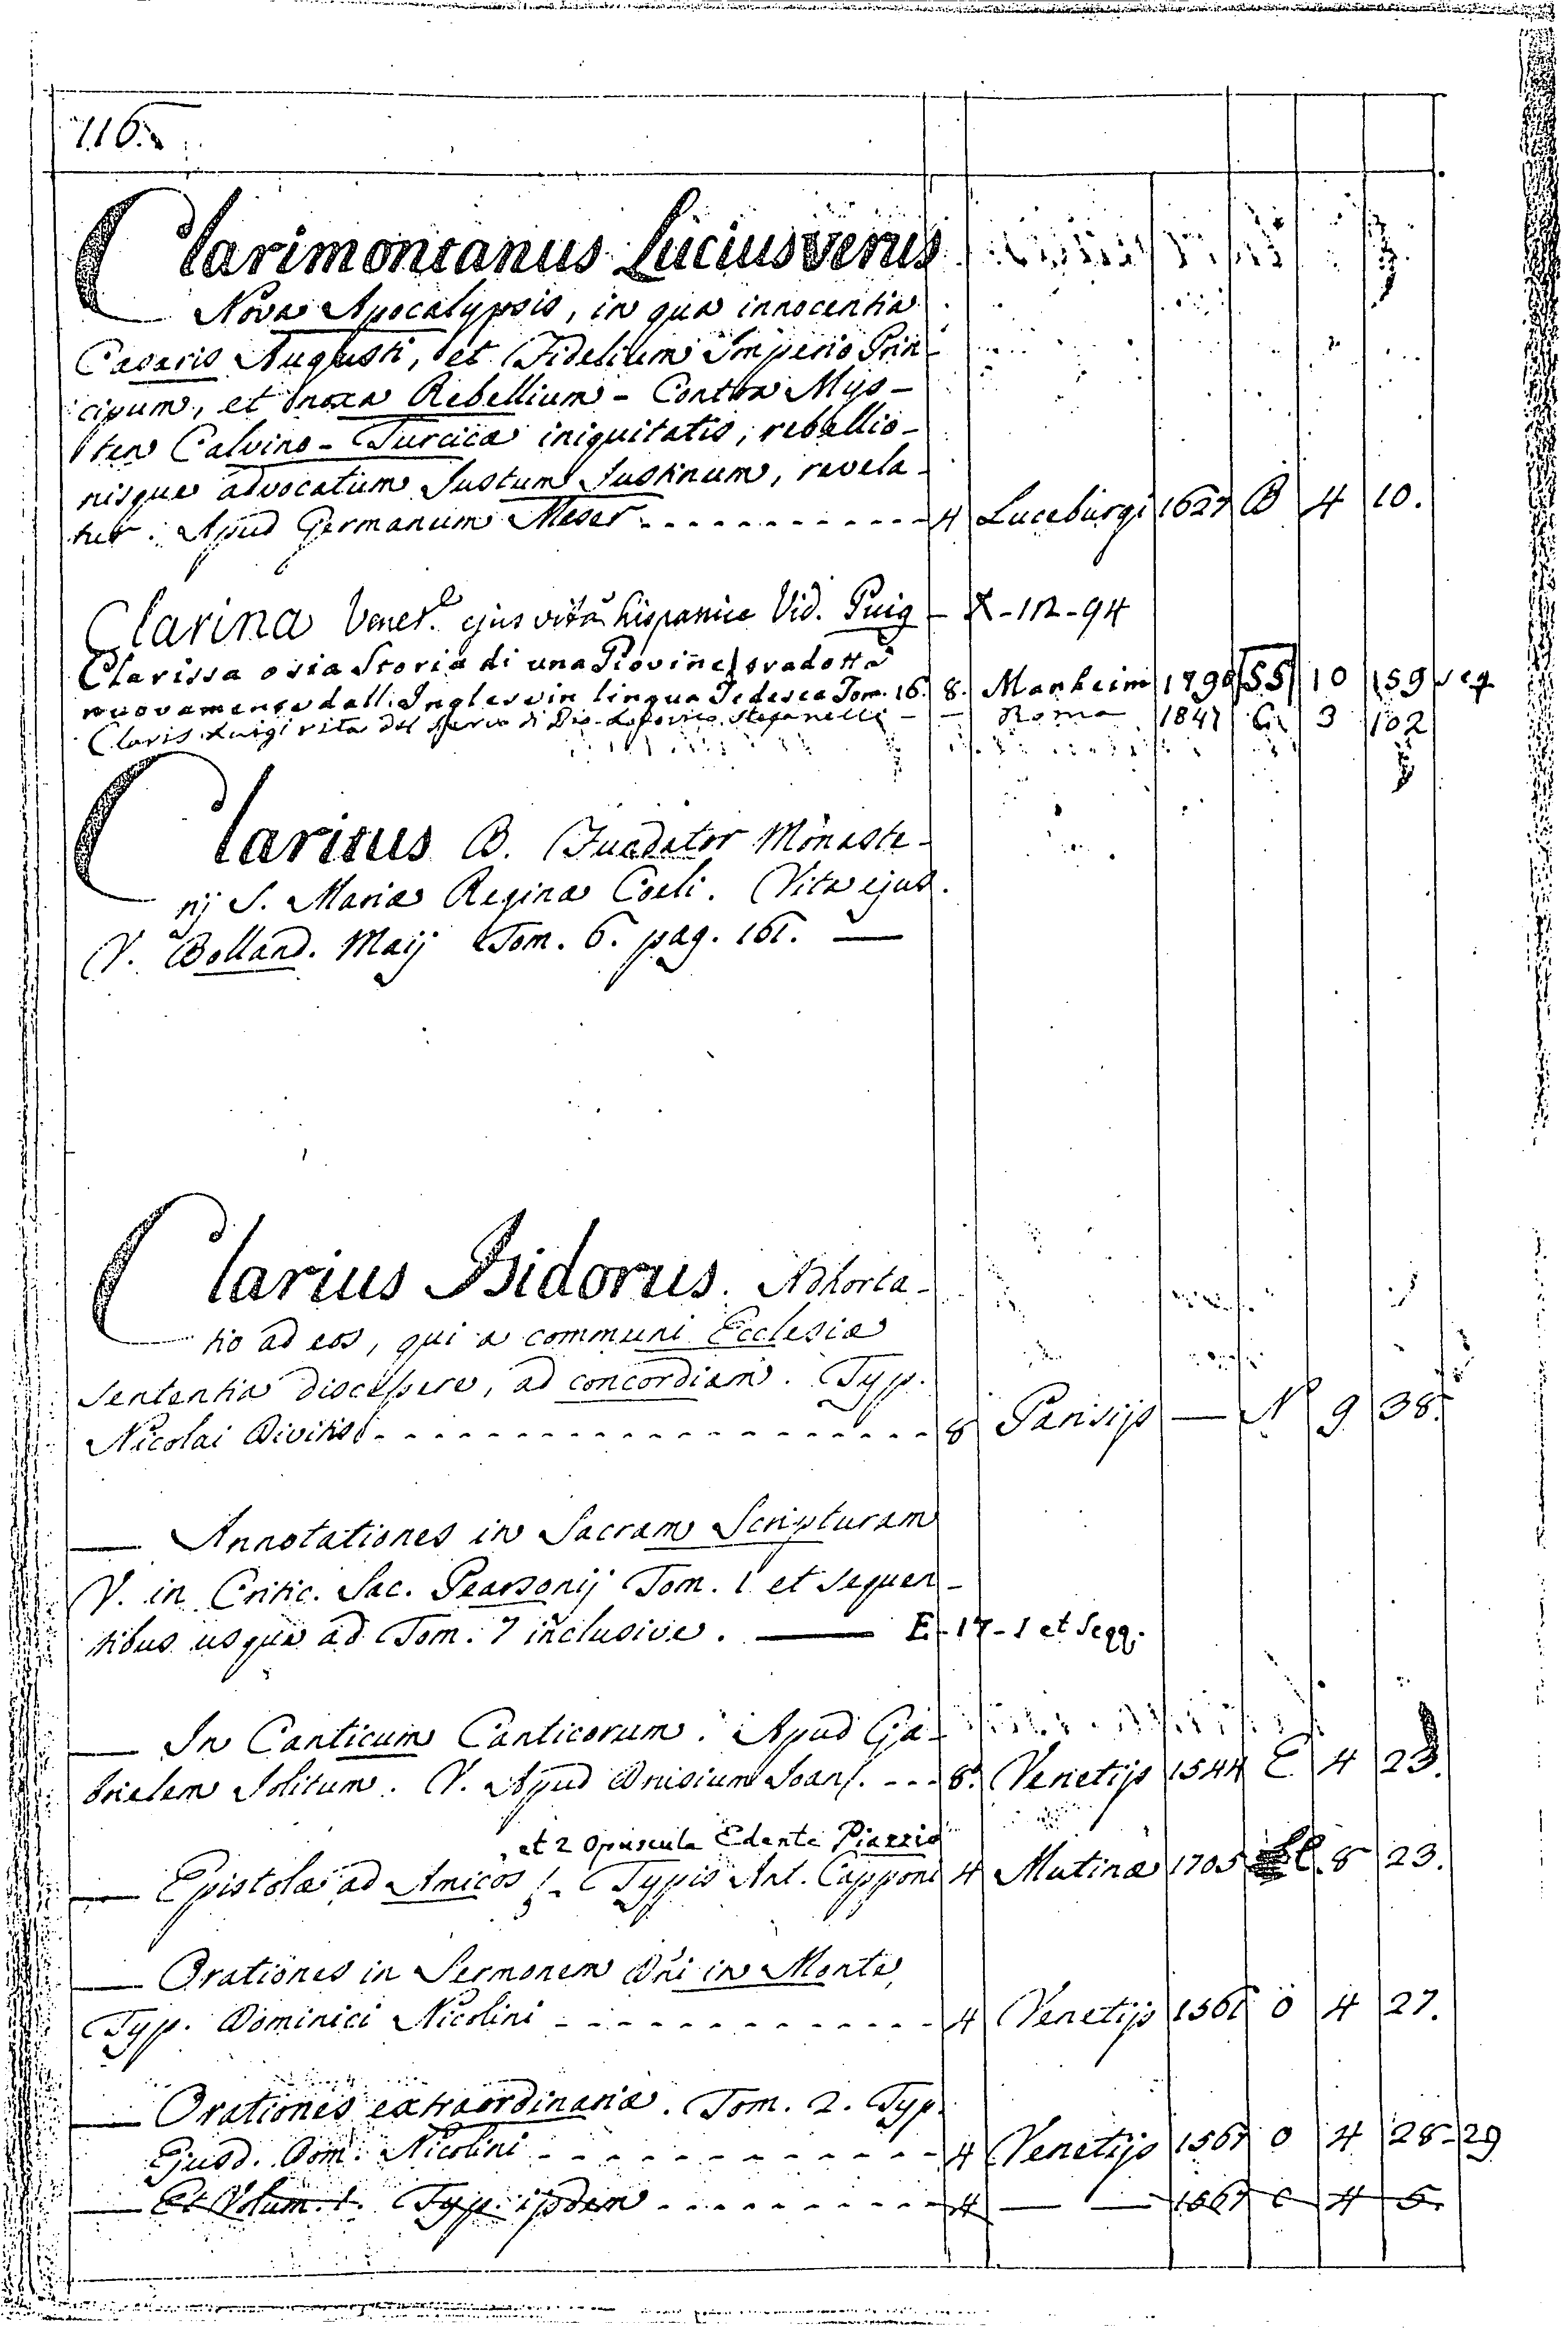 116.
Clarimontanus Luciusverus
Nova Apocalypsis, in qua innocentia
Cæsaris Augusti, et Fidelium Imperio Prin-
cipum, et noxa Rebellium - Contra Mys-
ten Calvino-Turcicæ iniquitatis, rebellio-
nisque advocatum Justum Justinum, revela-
tur. Apud Germanum Meser - - - 4 Luceburgi 1627 B 4 10.
Clarina Vener.e ejus vita hispanice Vid. Puig - X-112-94
Clarissa osia Storia di una Giovine tradotta
nuovamente dall. Inglese in lingua Tedesca Tom. 16. 8. Manheim 1790 SS 10 159 seq
Claris Luigi vita del servo di Dio Stefanelli - - Roma 1847 3 102
Claritus B. Fundator Monaste-
rij S. Mariæ Reginæ Coeli. Vita ejus.
V. Bolland. Maij Tom. 6. pag. 161. —
Clarius Isidorus. Adhorta-
tio ad eos, qui a communi Ecclesiæ
sententia discessere, ad concordiam. Typ.
Nicolai Divitis - - - 8 Parisijs — N 9 38.
— Annotationes in Sacram Scripturam
V. in Critic. Sac. Pearsonij Tom. 1 et sequen-
tibus usque ad Tom. 7 inclusive. — E-17-1 et seqq.
— In Canticum Canticorum. Apud Ga-
brielem Jolitum. V. Apud Dnisium Joan. - - - 8. Venetijs 1544 E 4 23.
, et 2 Opuscula Edente Piazzio
— Epistolæ ad Amicos - Typis Ant. Capponi 4 Mutinæ 1705 8 23.
— Orationes in Sermonem Dñi in Monte,
Typ. Dominici Nicolini - - - 4 Venetijs 1566 O 4 27.
— Orationes extraordinariæ. Tom. 2. Typ.
Ejusd. Dom. Nicolini - - - 4 Venetijs 1567 O 4 28-29
— Et Volum. 1. Typ. ipsdem - - - 4 — — 1567 C 4 5.